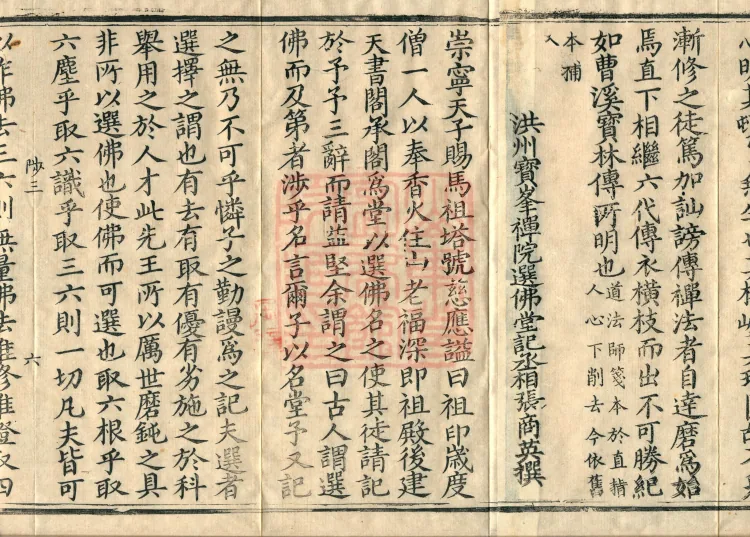 漸修之徒篤加訕謗傳禪法者自達磨爲始
焉直下相繼六代傳衣橫枝而出不可勝紀
如曹溪寶林傳所明也道法師箋本於直指
人心下削去今依舊
本補
入
洪州寶峯禪院選佛堂記丞相張商英撰
崇寧天子賜馬祖塔號慈應謚曰祖印歲度
僧一人以奉香火住山老福深即祖殿後建
天書閣承閣爲堂以選佛名之使其徒請記
於予予三辭而請益堅余謂之曰古人謂選
佛而及第者涉乎名言爾子以名堂予又記
之無乃不可乎憐子之勤謾爲之記夫選者
選擇之謂也有去有取有優有劣施之於科
舉用之於人才此先王所以厲世磨鈍之具
非所以選佛也使佛而可選也取六根乎取
六塵乎取六識乎取三六則一切凡夫皆可
陟三 六
以作佛去三六則無量佛法誰修誰證取四